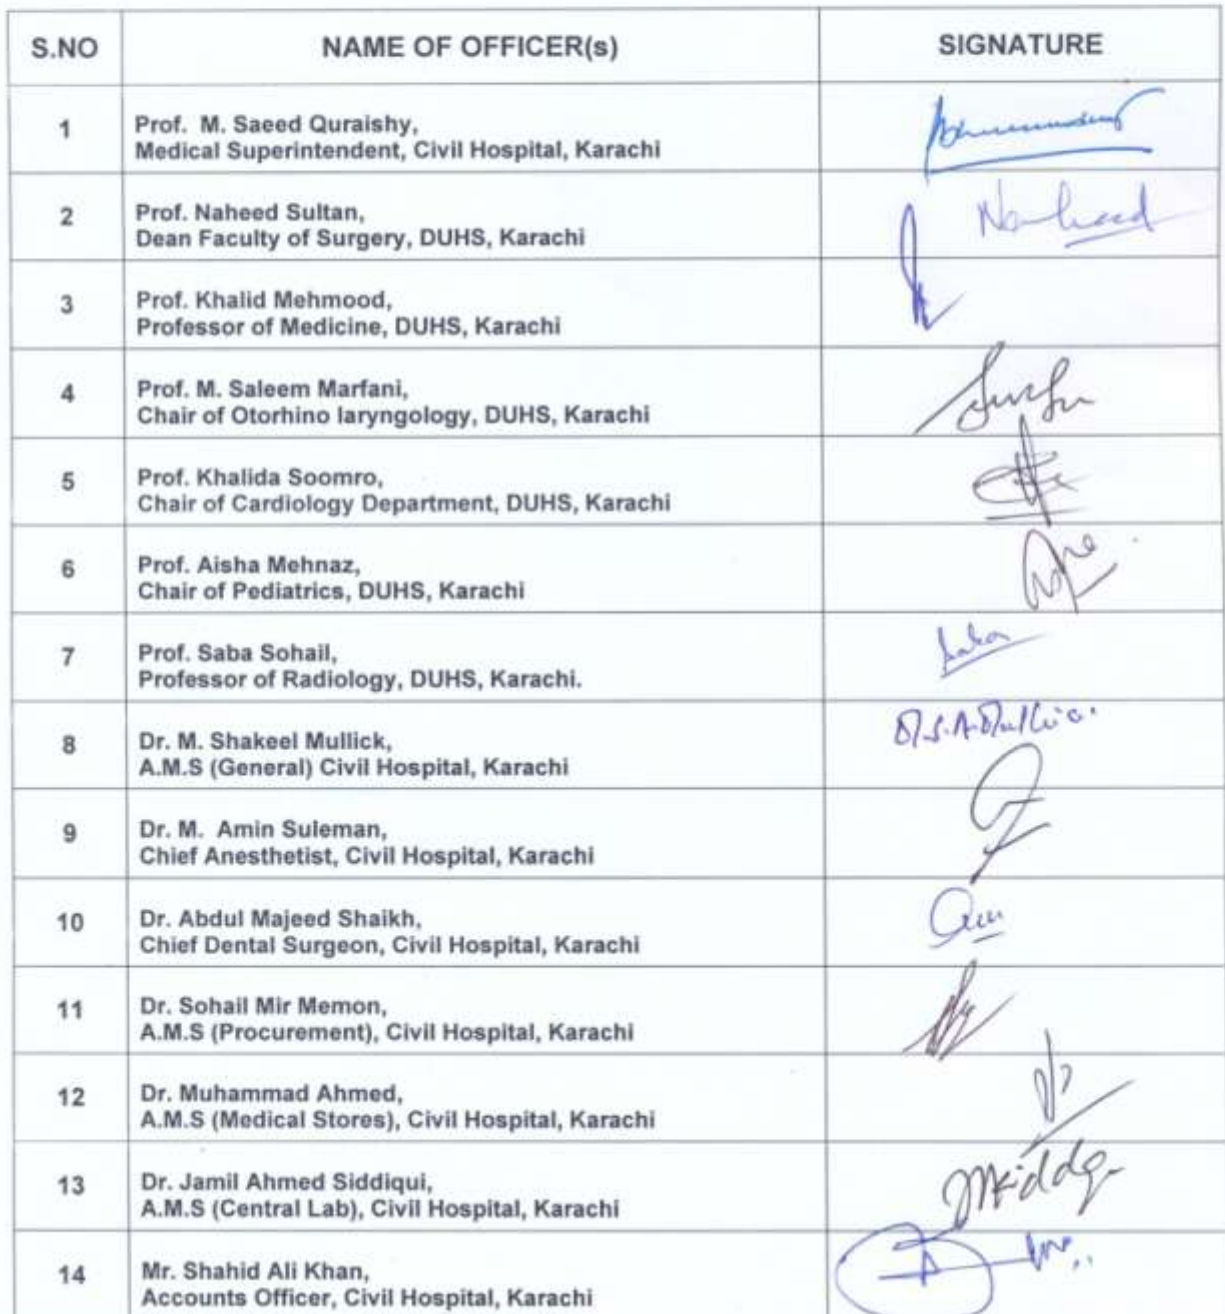 S.NO NAME OF OFFICER(s) SIGNATURE
1 Prof. M. Saeed Quraishy,
Medical Superintendent, Civil Hospital, Karachi
2 Prof. Naheed Sultan,
Dean Faculty of Surgery, DUHS, Karachi
Naheed
3 Prof. Khalid Mehmood,
Professor of Medicine, DUHS, Karachi
4 Prof. M. Saleem Marfani,
Chair of Otorhino laryngology, DUHS, Karachi
5 Prof. Khalida Soomro,
Chair of Cardiology Department, DUHS, Karachi
6 Prof. Aisha Mehnaz,
Chair of Pediatrics, DUHS, Karachi
7 Prof. Saba Sohail,
Professor of Radiology, DUHS, Karachi.
8 Dr. M. Shakeel Mullick,
A.M.S (General) Civil Hospital, Karachi
9 Dr. M. Amin Suleman,
Chief Anesthetist, Civil Hospital, Karachi
10 Dr. Abdul Majeed Shaikh,
Chief Dental Surgeon, Civil Hospital, Karachi
11 Dr. Sohail Mir Memon,
A.M.S (Procurement), Civil Hospital, Karachi
12 Dr. Muhammad Ahmed,
A.M.S (Medical Stores), Civil Hospital, Karachi
13 Dr. Jamil Ahmed Siddiqui,
A.M.S (Central Lab), Civil Hospital, Karachi
14 Mr. Shahid Ali Khan,
Accounts Officer, Civil Hospital, Karachi